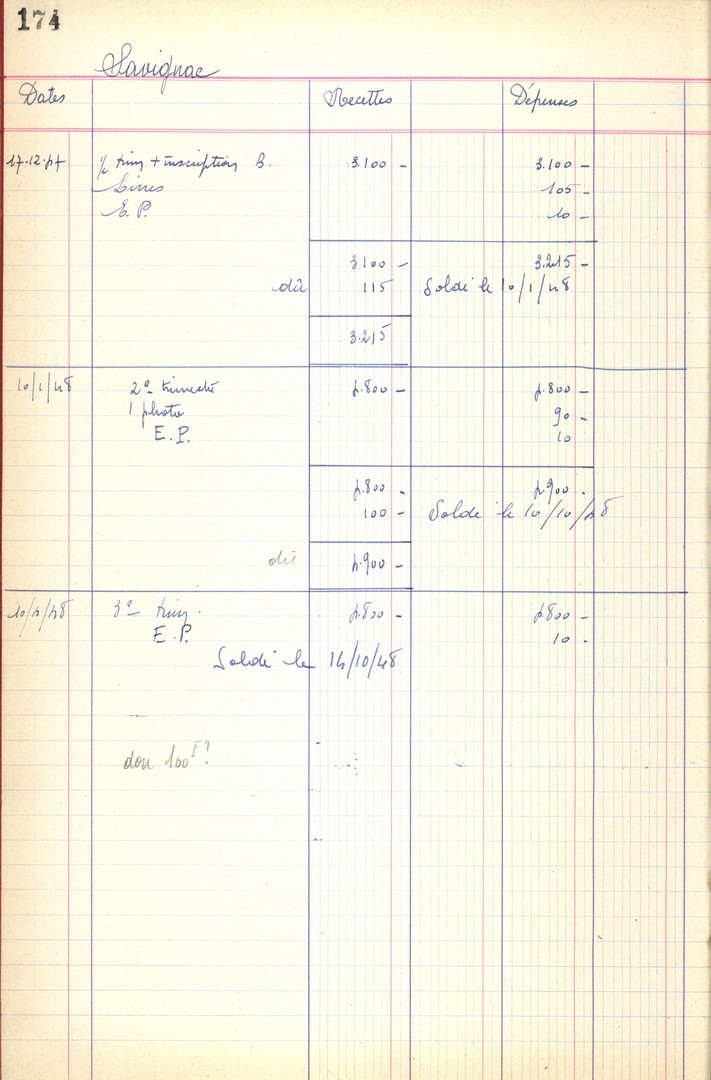 174
Savignac
Dates Recettes Dépenses
17-12-47 ½ trim + inscription B. 3.100 - 3.100 -
Livres 105 -
E.P. 10 -
3100 - 3.215 -
dû 115 Soldé le 10/1/48
3.215
10/1/48 2e trimestre 4.800 - 4.800 -
1 photo 90 -
E.P. 10
4.800 - 4.900 -
100 - Solde le 10/10/48
dû 4.900 -
3e trim. 4.800 - 4.800 -
E.P. 10 -
Soldé le 14/10/48
don 100F?